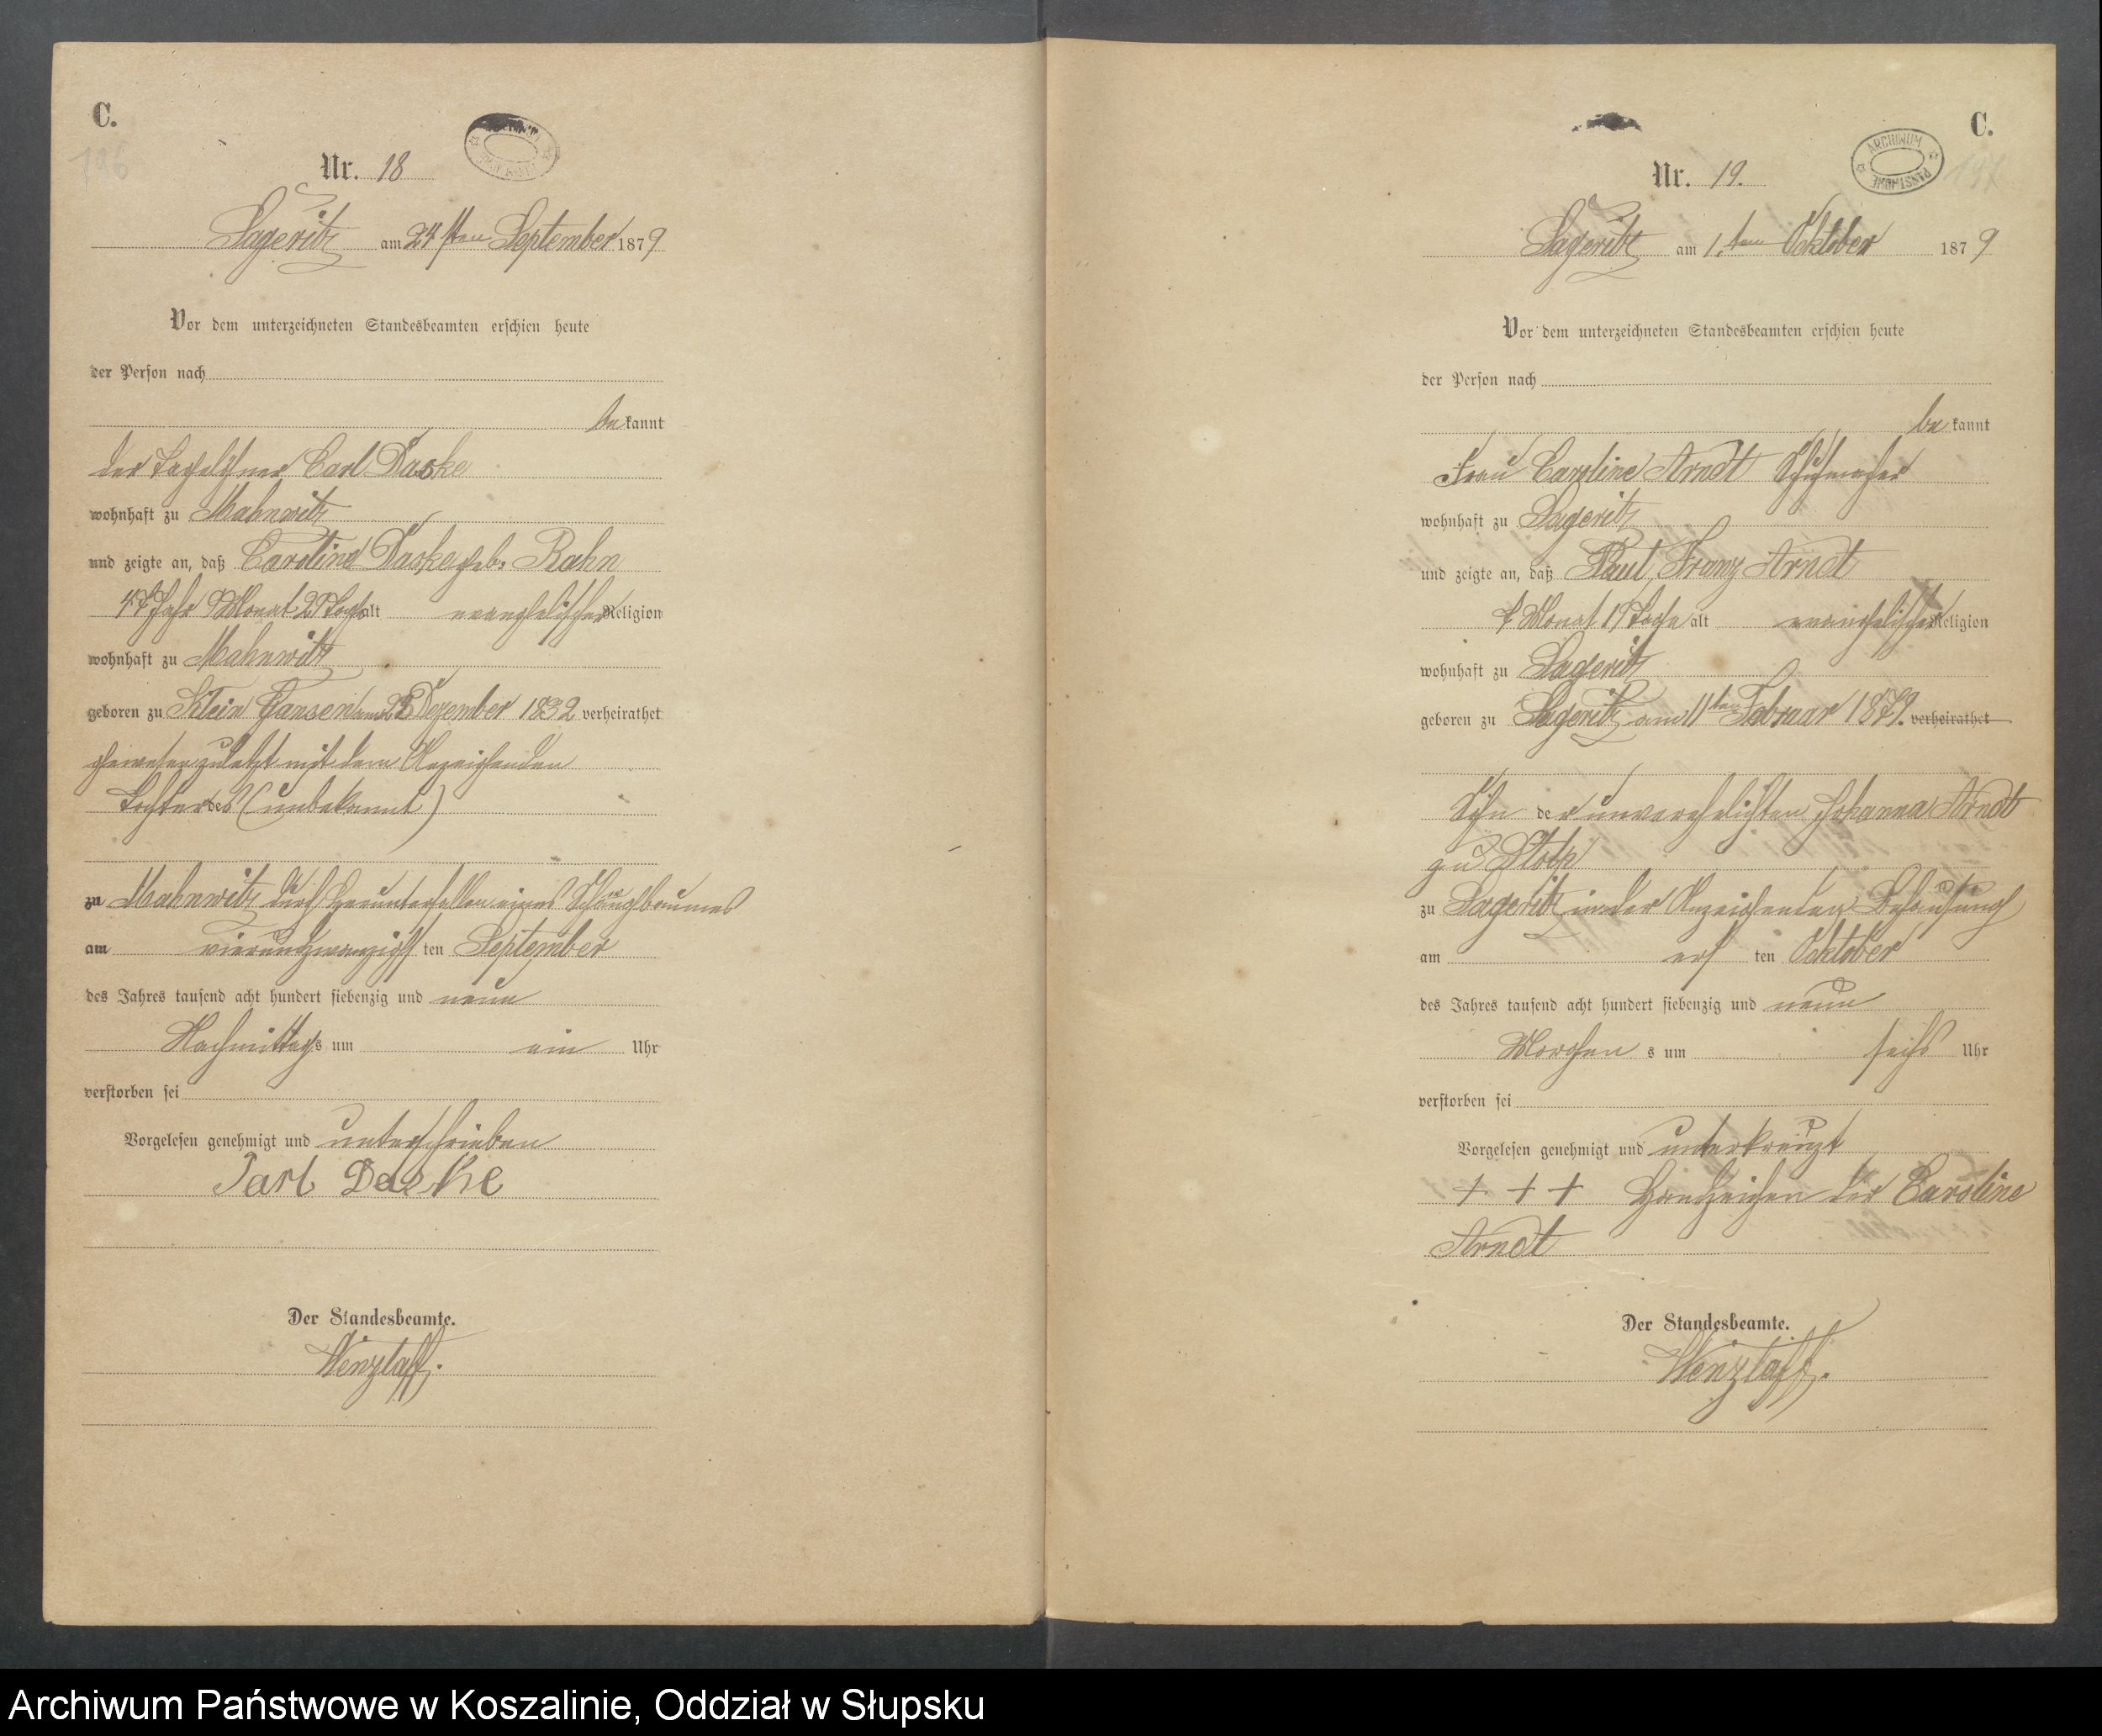 C.
Nr. 18
Sageritz am 24sten September 1879
Vor dem unterzeichneten Standesbeamten erschien heute
der Person nach
bekannt
der Tagelöhner Carl Daske
wohnhaft zu Mahnwitz
und zeigte an, daß Caroline Daske geb. Rahn
Jahr Monat Tage alt evangelischer Religion
wohnhaft zu Mahnwitz
geboren zu Klein Gansen am Dezember 1832 verheirathet
gewesen zuletzt mit dem Anzeigenden
Tochter des (unbekannt)
zu Mahnwitz durch Herunterfallen eines
am vierundzwanzigsten September
des Jahres tausend acht hundert siebenzig und neun
Nachmittags um ein Uhr
verstorben sei
Vorgelesen genehmigt und unterschrieben
Carl Daske
Der Standesbeamte.
Wenzlaff.
C.
Nr. 19.
ARCHIWUM PAŃSTWOWE
197
Sageritz am 1.ten Oktober 1879
Vor dem unterzeichneten Standesbeamten erschien heute
der Person nach
bekannt
Frau Caroline Arndt Schuhmacher
wohnhaft zu Sageritz
und zeigte an, daß Paul Franz Arndt
7 Monat 19 Tage alt evangelischer Religion
wohnhaft zu Sageritz
geboren zu Sageritz am 11ten Februar 1879. verheirathet
Sohn der unverehelichten Johanna Arndt
zu Stolp
zu Sageritz in der Anzeigenden Behausung
am ersten Oktober
des Jahres tausend acht hundert siebenzig und neun
Morgens um sechs Uhr
verstorben sei
Vorgelesen genehmigt und unterkreuzt
+ + + Handzeichen der Caroline
Arndt
Der Standesbeamte.
Wenzlaff.
Archiwum Państwowe w Koszalinie, Oddział w Słupsku